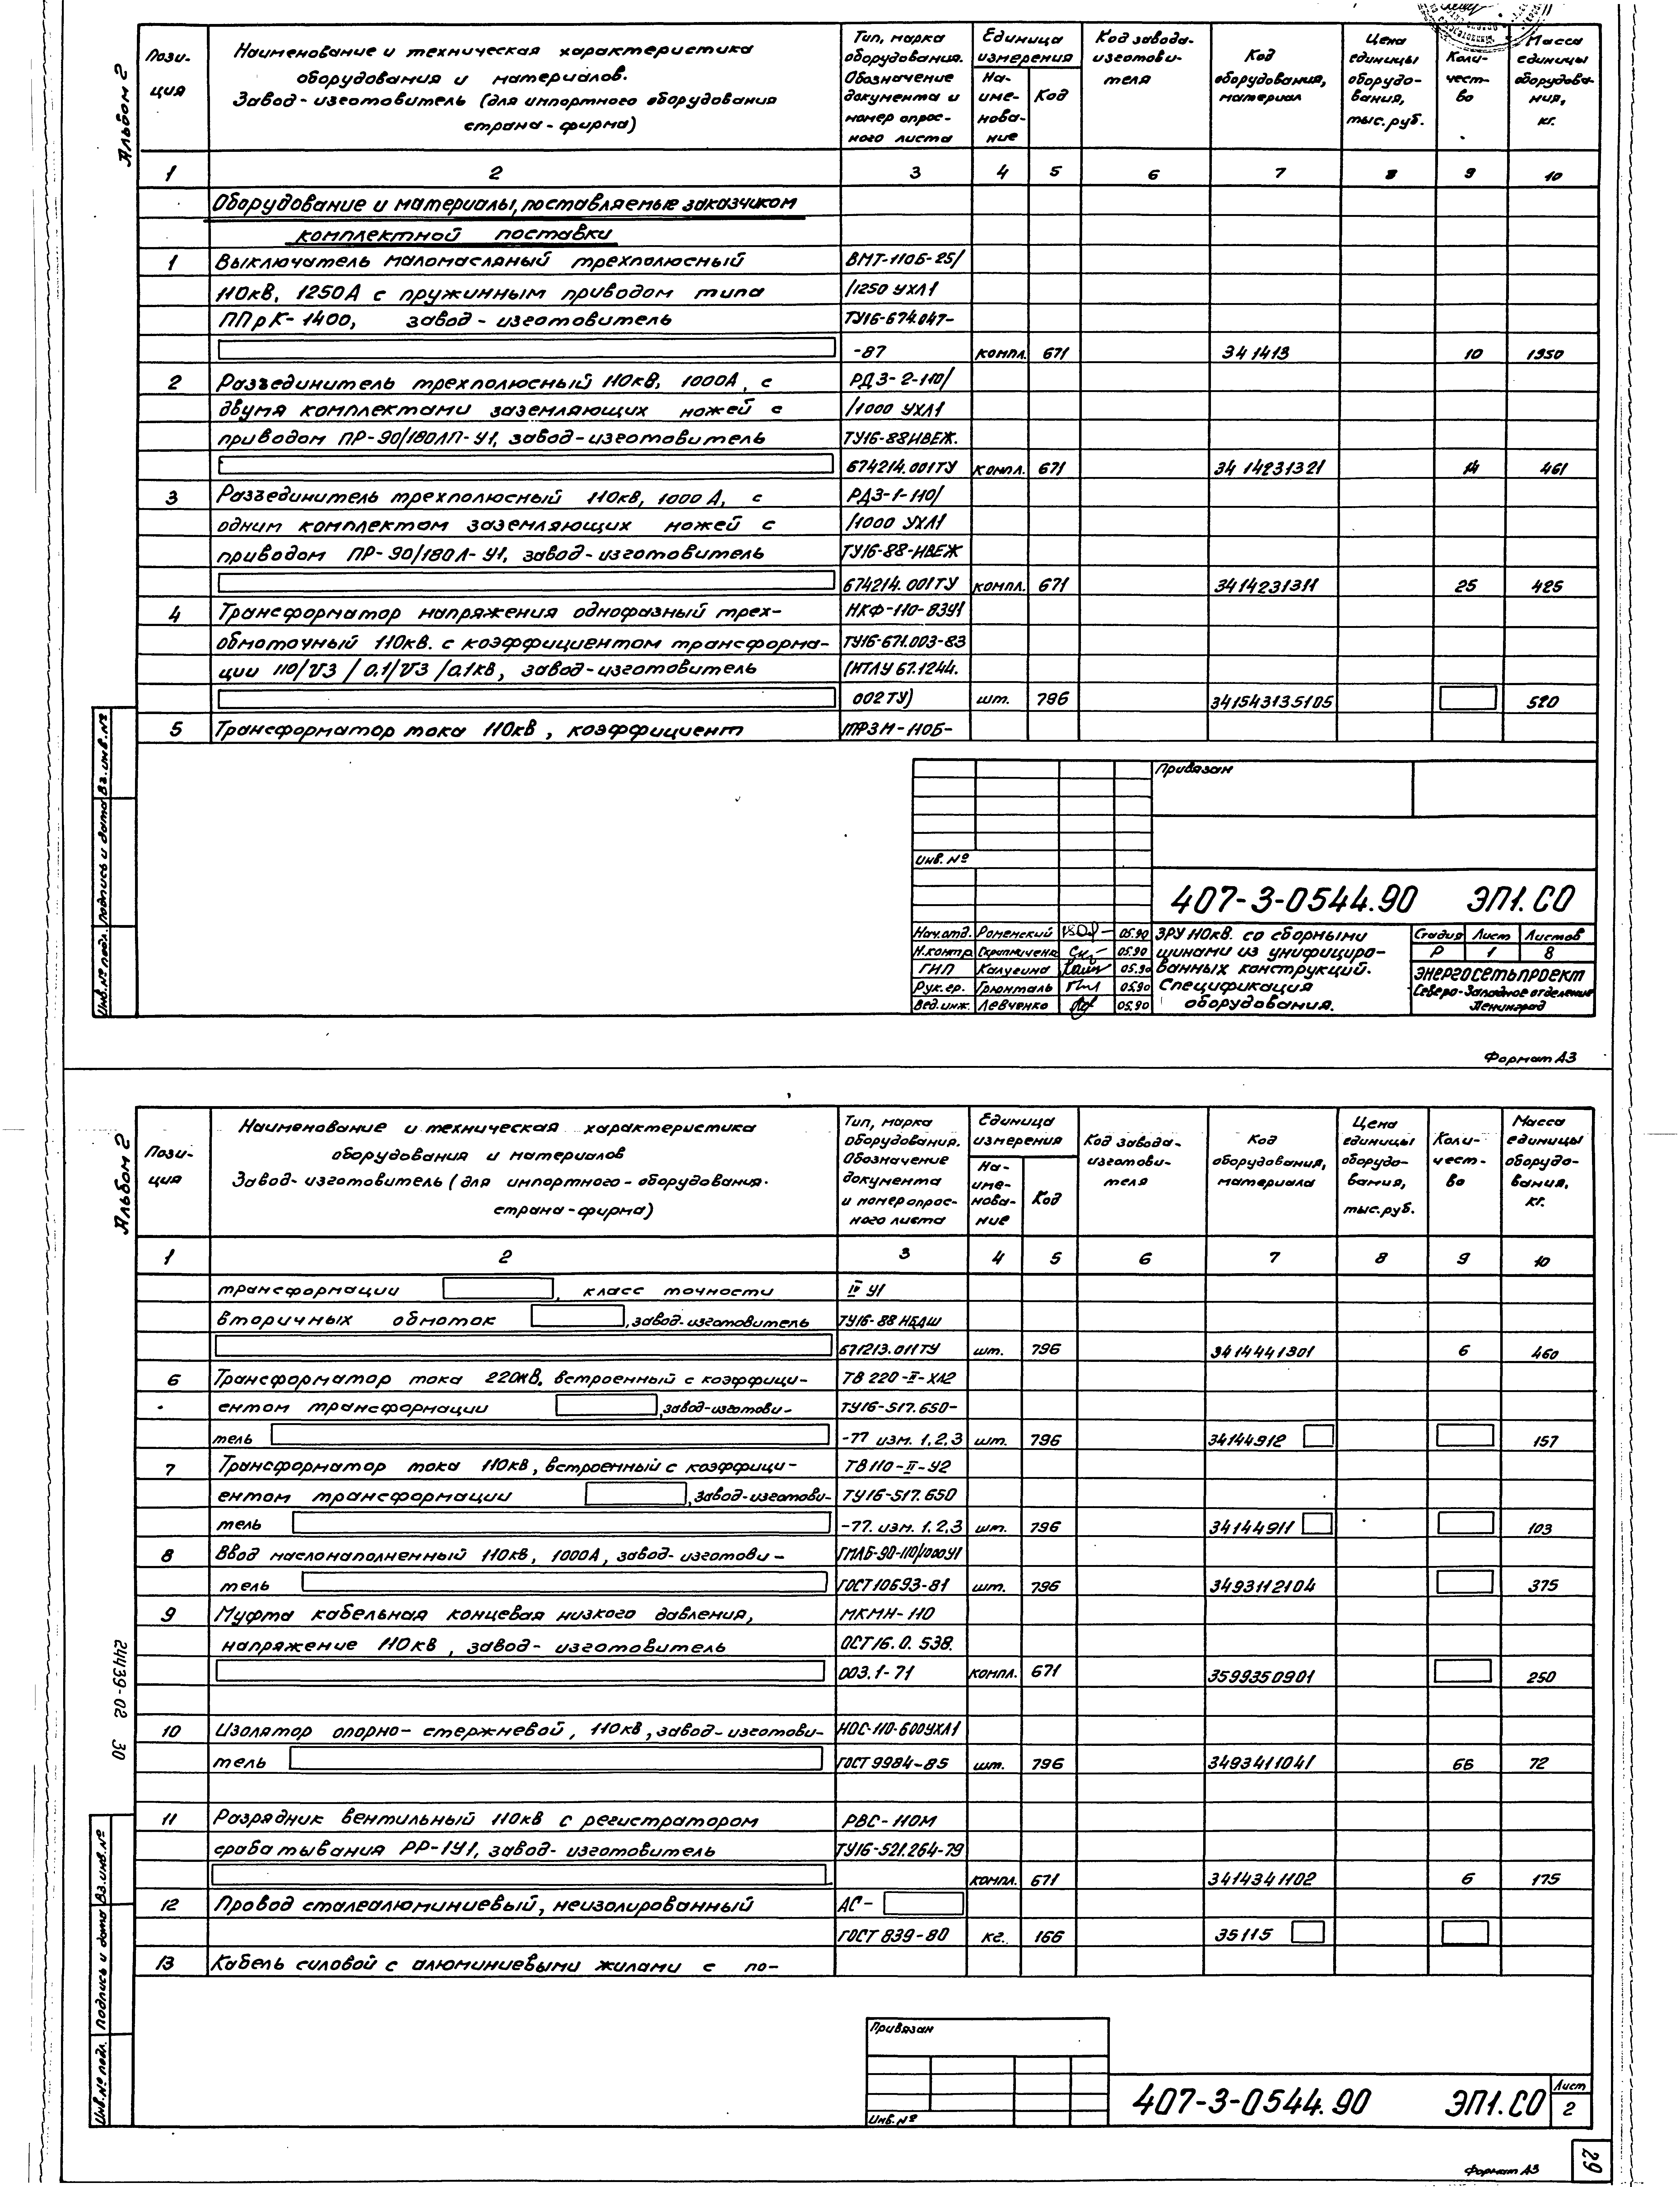 Альбом 2
Пози-
ция
Наименование и техническая характеристика
оборудования и материалов.
Завод-изготовитель (для импортного оборудования
страна-фирма)
Тип, марка
оборудования.
Обозначение
документа и
номер опрос-
ного листа
Единица
измерения
На-
име-
нова-
ние
Код
Код завода-
изготови-
теля
Код
оборудования,
материал
Цена
единицы
оборудо-
вания,
тыс.руб.
Коли-
чест-
во
Масса
единицы
оборудова-
ния,
кг.
1 2 3 4 5 6 7 8 9 10
Оборудование и материалы, поставляемые заказчиком
комплектной поставки
1 Выключатель маломасляный трехполюсный ВМТ-110Б-25/
110кВ, 1250А с пружинным приводом типа /1250 УХЛ1
ППрК-1400, завод-изготовитель ТУ16-674.047-
-87 компл. 671 341413 10 1950
2 Разъединитель трехполюсный 110кВ, 1000А, с РДЗ-2-110/
двумя комплектами заземляющих ножей с /1000 УХЛ1
приводом ПР-90/180ЛП-У1, завод-изготовитель ТУ16-88ИВЕЖ.
674214.001ТУ компл. 671 34 14231321 14 461
3 Разъединитель трехполюсный 110кВ, 1000 А, с РДЗ-1-110/
одним комплектом заземляющих ножей с /1000 УХЛ1
приводом ПР-90/180Л-У1, завод-изготовитель ТУ16-88-ИВЕЖ
674214.001ТУ компл. 671 3414231311 25 425
4 Трансформатор напряжения однофазный трех- НКФ-110-83У1
обмоточный 110кВ. с коэффициентом трансформа- ТУ16-671.003-83
ции 110/√3 / 0.1/√3 /0.1кВ, завод-изготовитель (ИТЛУ 671244.
002ТУ) шт. 796 341543135105 520
5 Трансформатор тока 110кВ, коэффициент ТФЗМ-110Б-
Привязан
Инв. №
407-3-0544.90 ЭП1.СО
Нач.отд. Роменский 05.90
Н.контр. 05.90
ГИП Калугина 05.90
Рук.гр. Грюнталь 05.90
Вед.инж. Левченко 05.90
ЗРУ 110кВ. со сборными
шинами из унифициро-
ванных конструкций.
Спецификация
оборудования.
Стадия Лист Листов
Р 1 8
Энергосетьпроект
Северо-Западное отделение
Ленинград
Инв.№ подл. Подпись и дата Вз.инв.№
Формат А3
Альбом 2
Пози-
ция
Наименование и техническая характеристика
оборудования и материалов
Завод-изготовитель (для импортного-оборудования.
страна-фирма)
Тип, марка
оборудования.
Обозначение
документа
и номер опрос-
ного листа
Единица
измерения
На-
име-
нова-
ние
Код
Код завода-
изготови-
теля
Код
оборудования,
материала
Цена
единицы
оборудо-
вания,
тыс.руб.
Коли-
чест-
во
Масса
единицы
оборудо-
вания,
кг.
1 2 3 4 5 6 7 8 9 10
трансформации , класс точности IV У1
вторичных обмоток , завод-изготовитель ТУ16-88 ИБДШ
671213.011ТУ шт. 796 3414441301 6 460
6 Трансформатор тока 220кВ, встроенный с коэффици- ТВ 220-II-ХЛ2
ентом трансформации , завод-изготови- ТУ16-517.650-
тель -77 изм. 1,2,3 шт. 796 34144912 157
7 Трансформатор тока 110кВ, встроенный с коэффици- ТВ110-II-У2
ентом трансформации , завод-изготови- ТУ16-517.650
тель -77. изм. 1,2,3 шт. 796 34144911 103
8 Ввод маслонаполненный 110кВ, 1000А, завод-изготови- ГМЛБ-90-110/1000У1
тель ГОСТ10693-81 шт. 796 3493112104 375
9 Муфта кабельная концевая низкого давления, МКМН-110
напряжение 110кВ, завод-изготовитель ОСТ16.0.538.
003.1-71 компл. 671 3599350901 250
10 Изолятор опорно-стержневой, 110кВ, завод-изготови- ИОС-110-600УХЛ1
тель ГОСТ 9984-85 шт. 796 3493411041 66 72
11 Разрядник вентильный 110кВ с регистратором РВС-110М
срабатывания РР-1У1, завод-изготовитель ТУ16-521.264-79
компл. 671 3414341102 6 175
12 Провод сталеалюминиевый, неизолированный АС-
ГОСТ 839-80 кг. 166 35115
13 Кабель силовой с алюминиевыми жилами с по-
24439-02 30
Инв.№ подл. Подпись и дата Вз.инв.№
Привязан
Инв.№
407-3-0544.90 ЭП1.СО
Лист
2
Формат А3
29